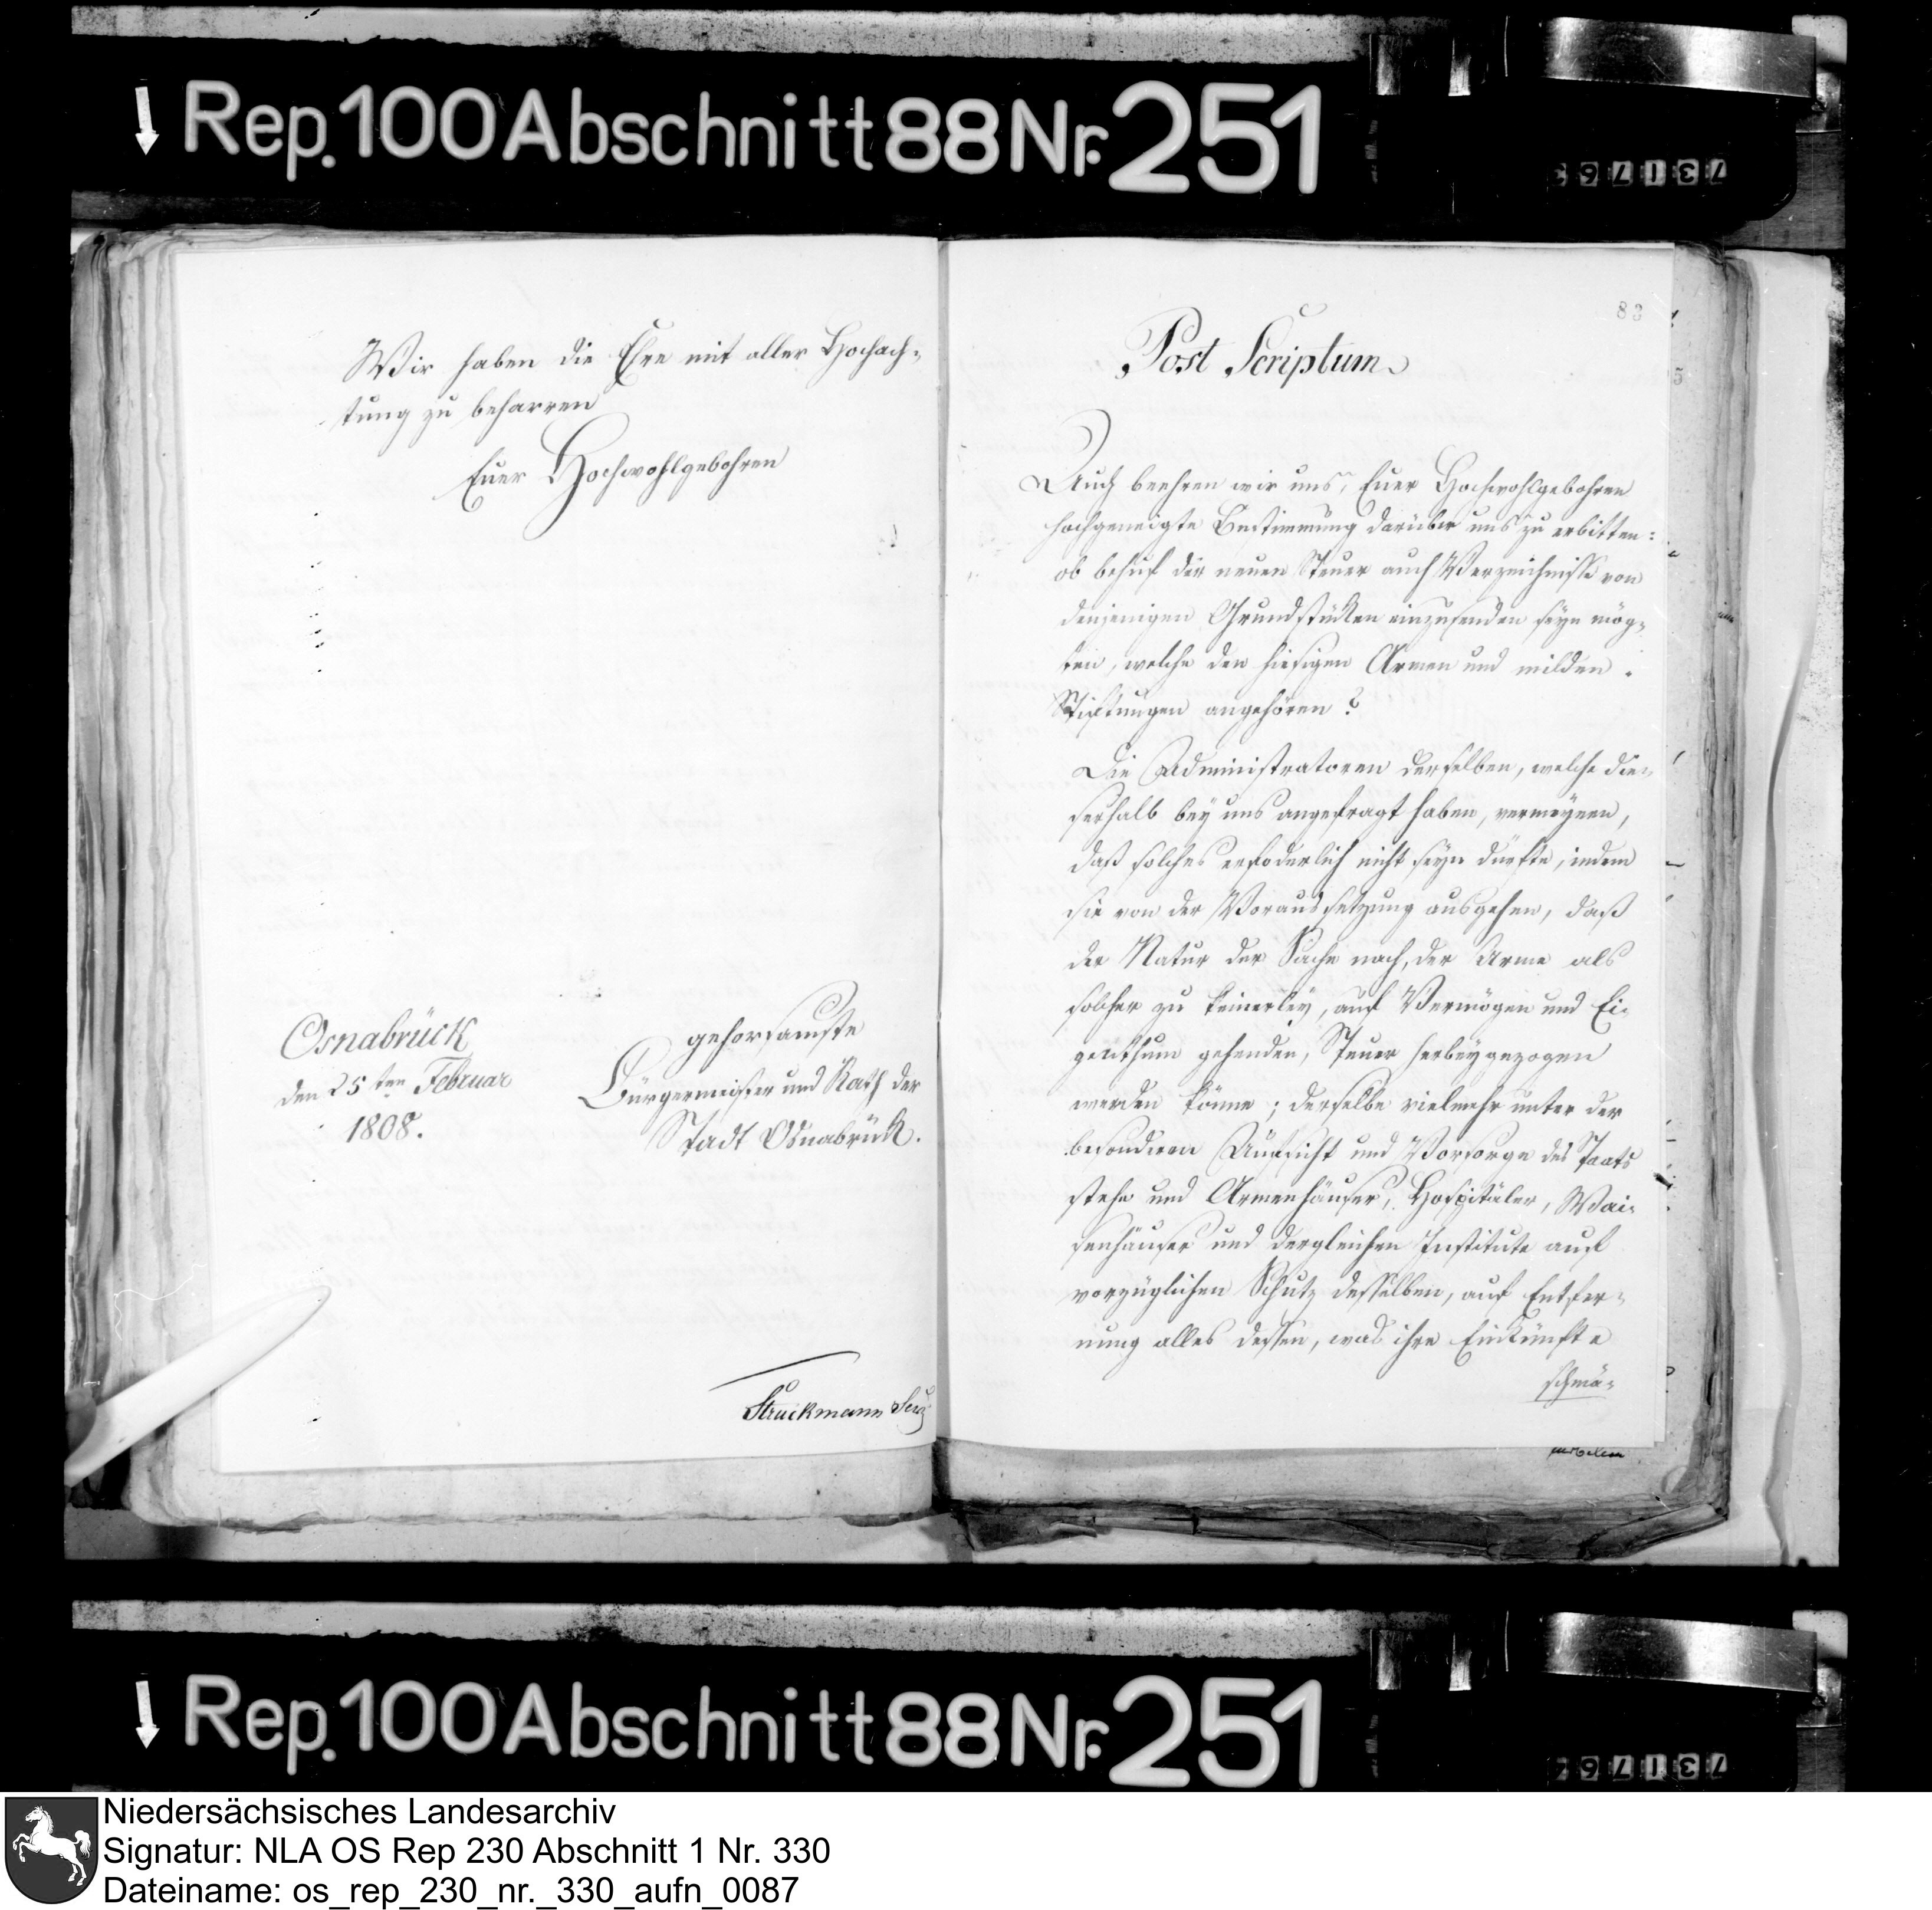 Rep. 100 Abschnitt 88 Nr. 251
731763
Wir haben die Ehre mit aller Hochach-
tung zu beharren
Euer Hochwohlgebohren
Osnabrück
den 25ten Februar
1808.
gehorsamste
Bürgermeister und Rath der
Stadt Osnabrück.
Struckmann Secr
83
Post Scriptum
Auch beehren wir uns, Euer Hochwohlgebohren
hochgeneigte Bestimmung darüber uns zu erbitten:
ob behuf der neuen Steuer auch Verzeichnisse von
denjenigen Grundstücken einzusenden seyn mög-
ten, welche den hiesigen Armen und milden
Stiftungen angehören?
Die Administratoren derselben, welche die-
serhalb bey uns angefragt haben, vermeynen,
daß solches erfoderlich nicht seyn dürfte, indem
sie von der Voraussetzung ausgehen, daß
der Natur der Sache nach, der Arme als
solcher zu keinerley, auf Vermögen und Ei-
genthum gehenden, Steuer herbeygezogen
werden könne; derselbe vielmehr unter der
besonderen Aufsicht und Vorsorge des Staats
stehe und Armenhäuser, Hospitäler, Wai-
senhäuser und dergleichen Institute auf
vorzüglichen Schutz desselben, auf Entfer-
nung alles dessen, was ihre Einkünfte
schmä-
Rep. 100 Abschnitt 88 Nr. 251
Niedersächsisches Landesarchiv
Signatur: NLA OS Rep 230 Abschnitt 1 Nr. 330
Dateiname: os_rep_230_nr._330_aufn_0087